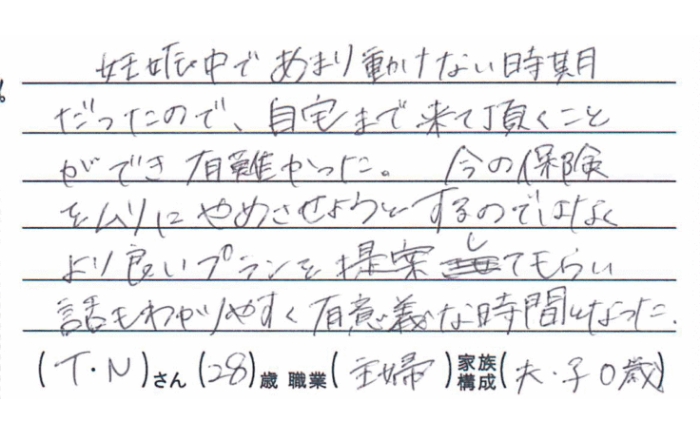 妊娠中であまり動けない時期
だったので、自宅まで来て頂くこと
ができ有難かった。 今の保険
をムリにやめさせようとするのではなく
より良いプランを提案してもらい
話もわかりやすく有意義な時間となった.
(T・N)さん(28)歳 職業(主婦)家族構成(夫・子0歳)